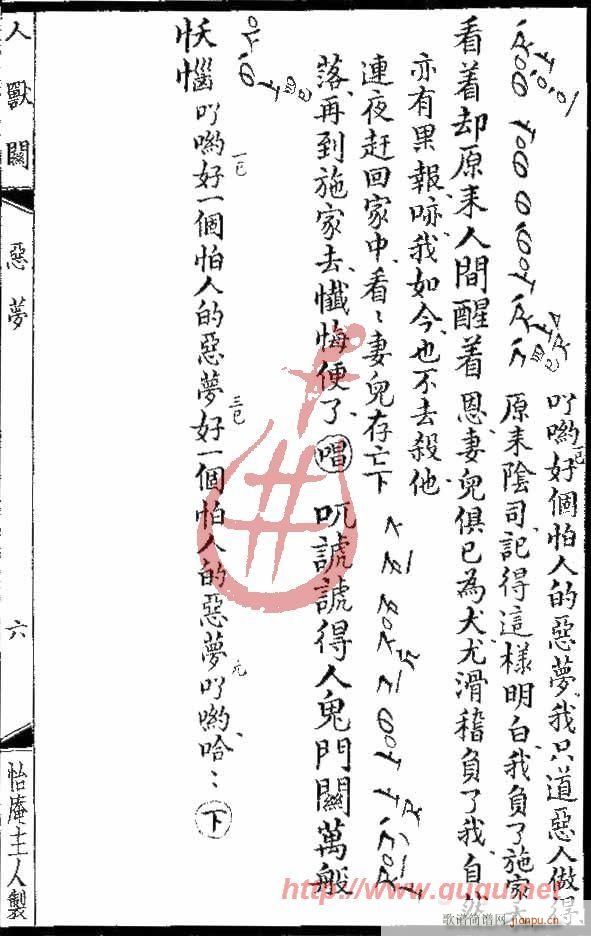 看着却原来人間醒着
吖喲好個怕人的惡夢我只道惡人做得
原来陰司記得這樣明白我負了施家大
恩妻兒俱已為犬尤滑稽負了我自然
亦有果報哧我如今也不去殺他
連夜赶回家中看〻妻兒存亡下
落再到施家去懺悔便了 唱 諕諕得人鬼門關萬般
惱吖喲好一個怕人的惡夢好一個怕人的惡夢吖喲哈〻下
人獸關
惡夢
六
怡庵主人製
http://www.guqu.net
歌谱简谱网
jianpu.cn